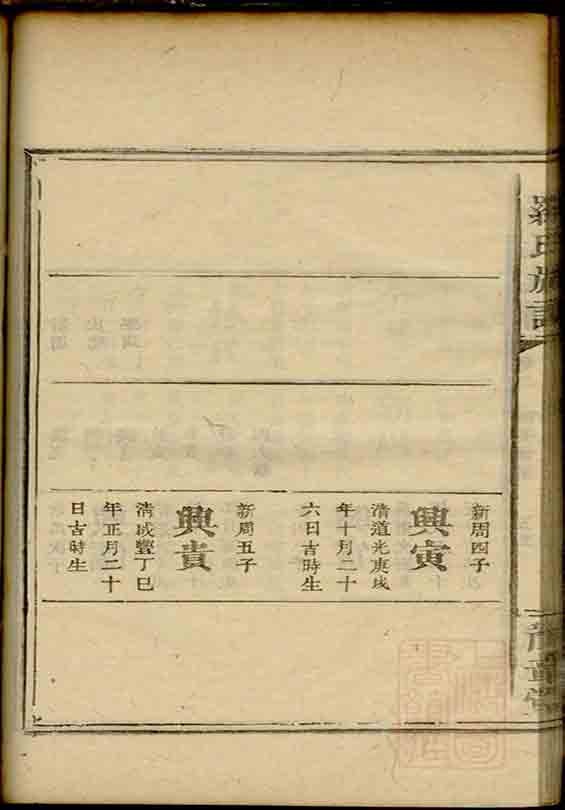 羅氏族譜
豫章堂
新周四子
興寅
清道光庚戌
年十月二十
六日吉時生
新周五子
興貴
清咸豐丁巳
年正月二十
日吉時生
上海圖
書館藏